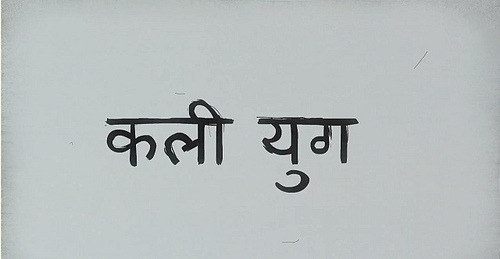 कली युग